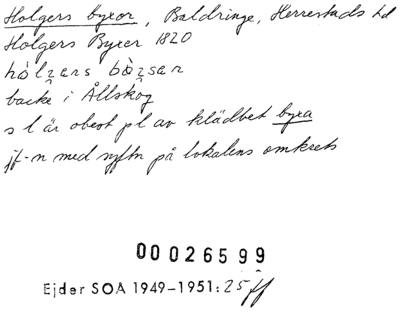 Holgers byxor, Baldringe, Herrestads hd
Holgers Byxer 1820
hòlgærs bỳsær
backe i Ållskog
s l är obest pl av klädbet byxa
jf-n med syftn på lokalens omkrets
00026599
Ejder SOA 1949-1951:25ff